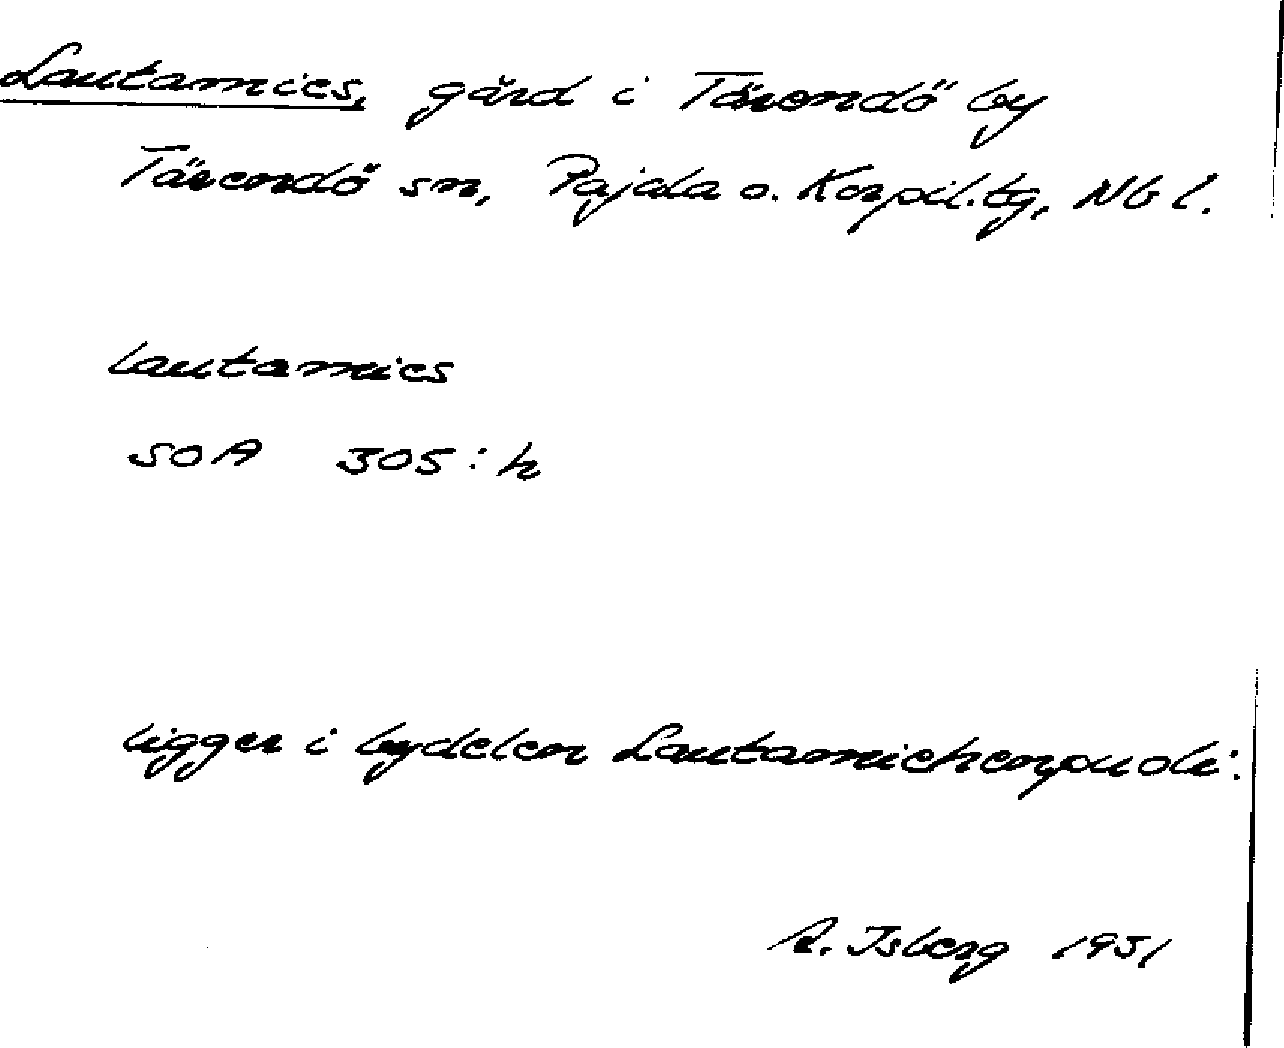 Lautamies, gård i Tärendö by
Tärendö sn, Pajala o. Korpil.tg, Nb l.
lautamies
SOA 305:h
ligger i bydelen Lautamiehenpuoli.
A. Isberg 1931